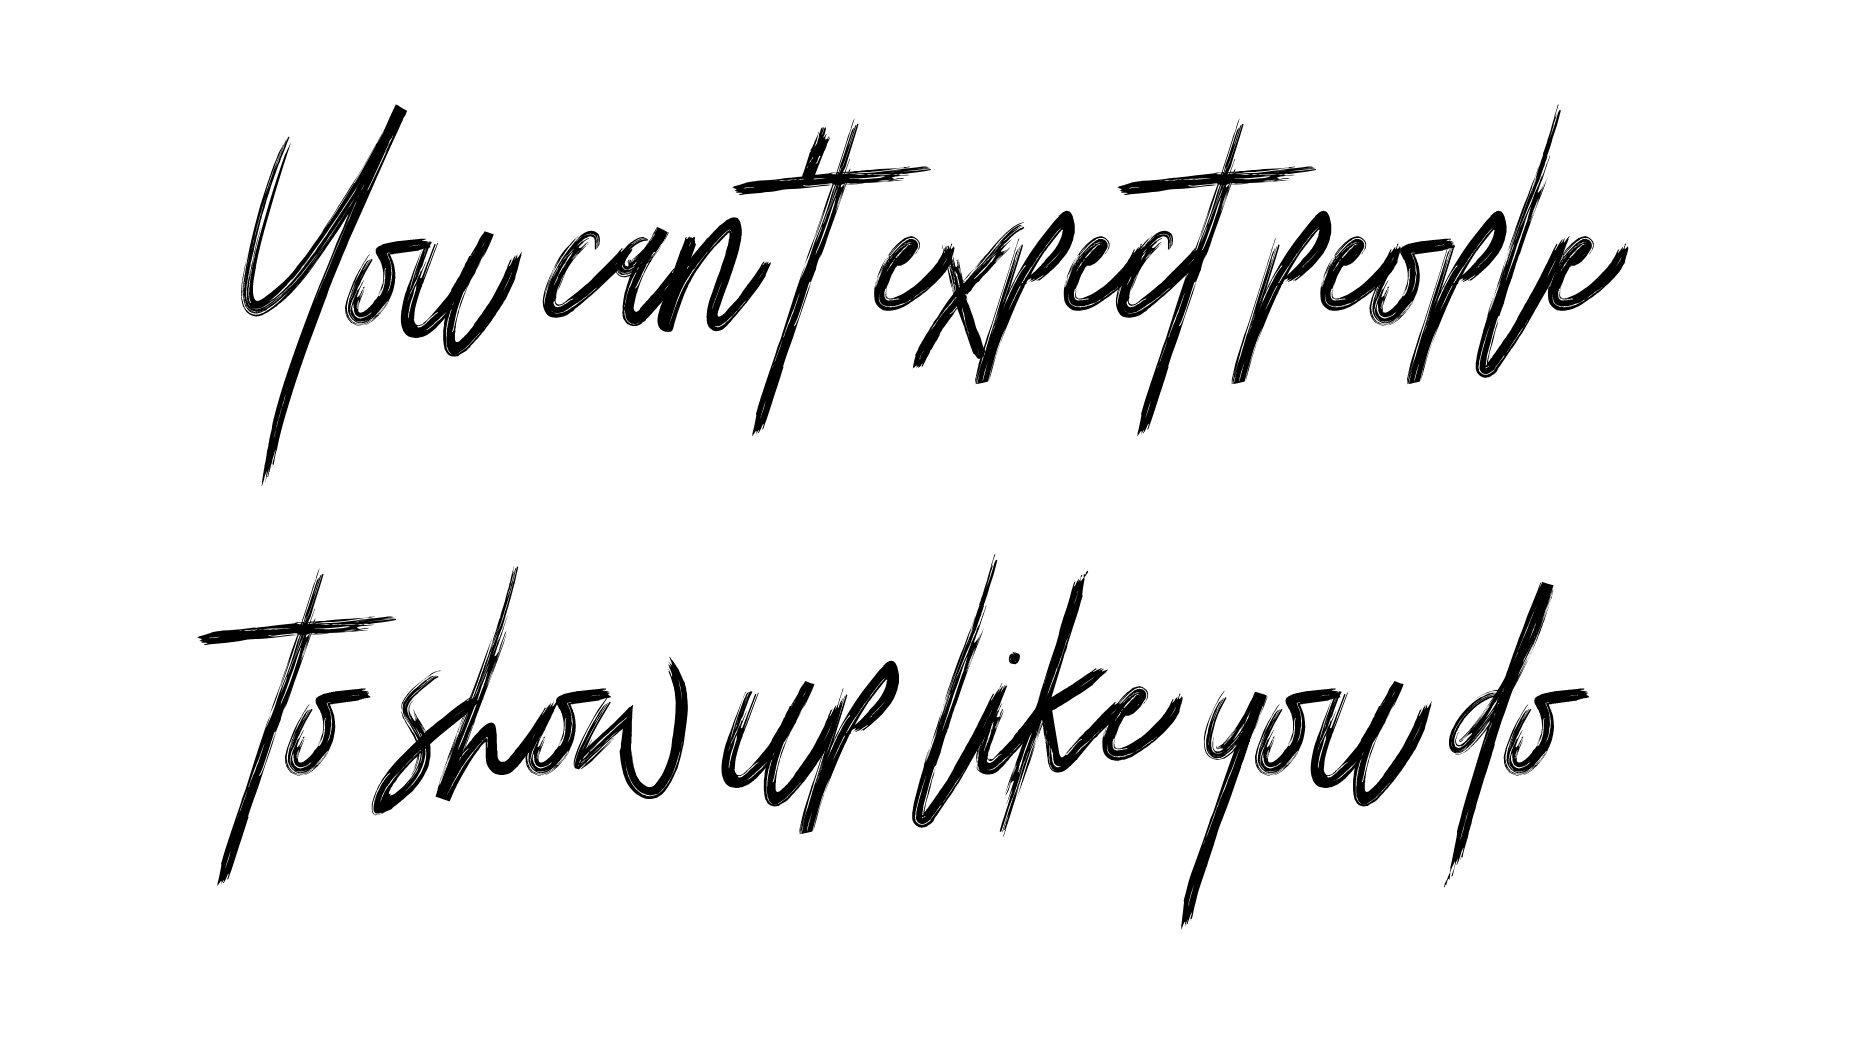 You can't expect people
to show up like you do